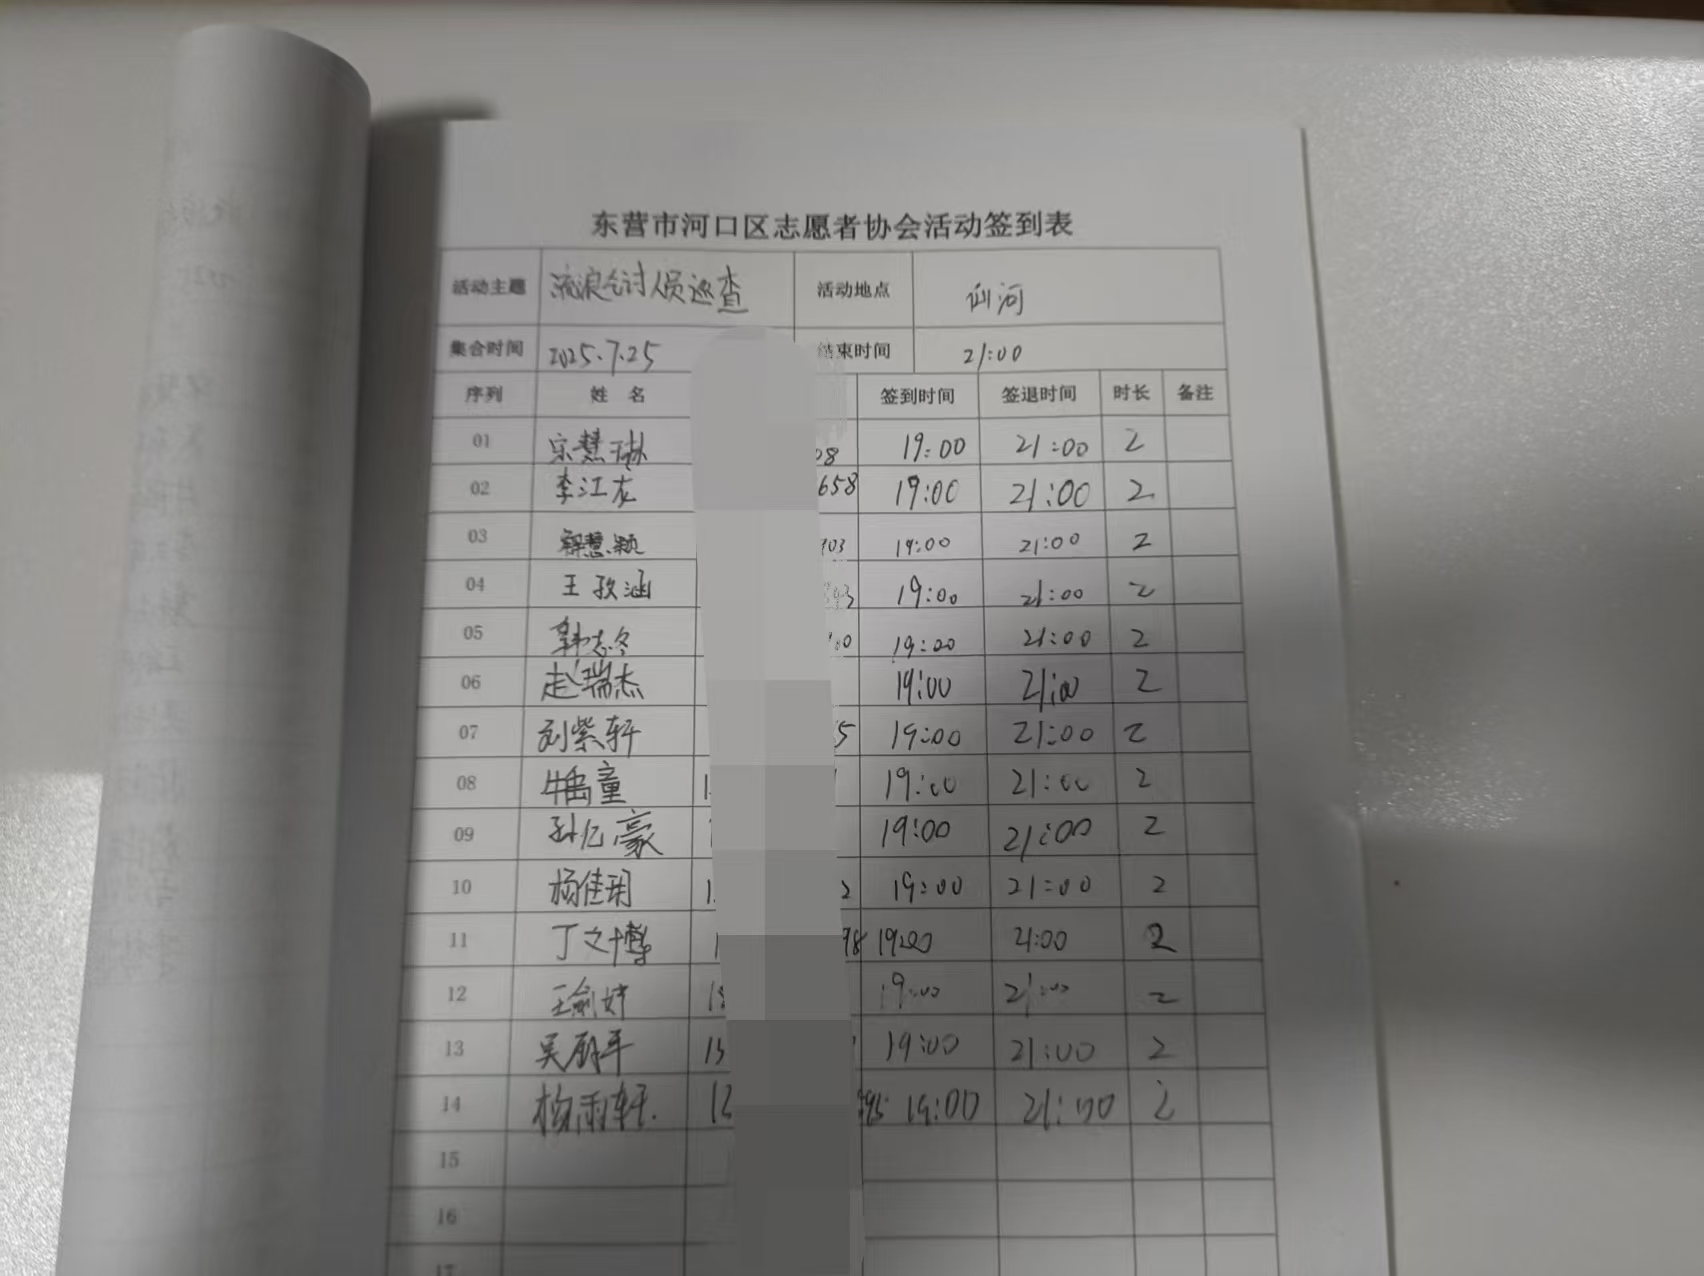 东营市河口区志愿者协会活动签到表
活动主题 流浪乞讨人员巡查 活动地点 仙河
集合时间 2025.7.25 结束时间 21:00
序列 姓名 签到时间 签退时间 时长 备注
01 宗慧琳 08 19:00 21:00 2
02 李江龙 658 19:00 21:00 2
03 慧颖 903 19:00 21:00 2
04 王孜涵 19:00 21:00 2
05 韩志冬 19:00 21:00 2
06 赵瑞杰 19:00 21:00 2
07 刘紫轩 5 19:00 21:00 2
08 牛禹童 1 19:00 21:00 2
09 孙亿豪 19:00 21:00 2
10 杨佳玥 1 2 19:00 21:00 2
11 丁之博 1 98 19:00 21:00 2
12 王愉婷 19:00 21:00 2
13 吴蔚平 13 19:00 21:00 2
14 杨雨轩 19:00 21:00 2
15
16
17